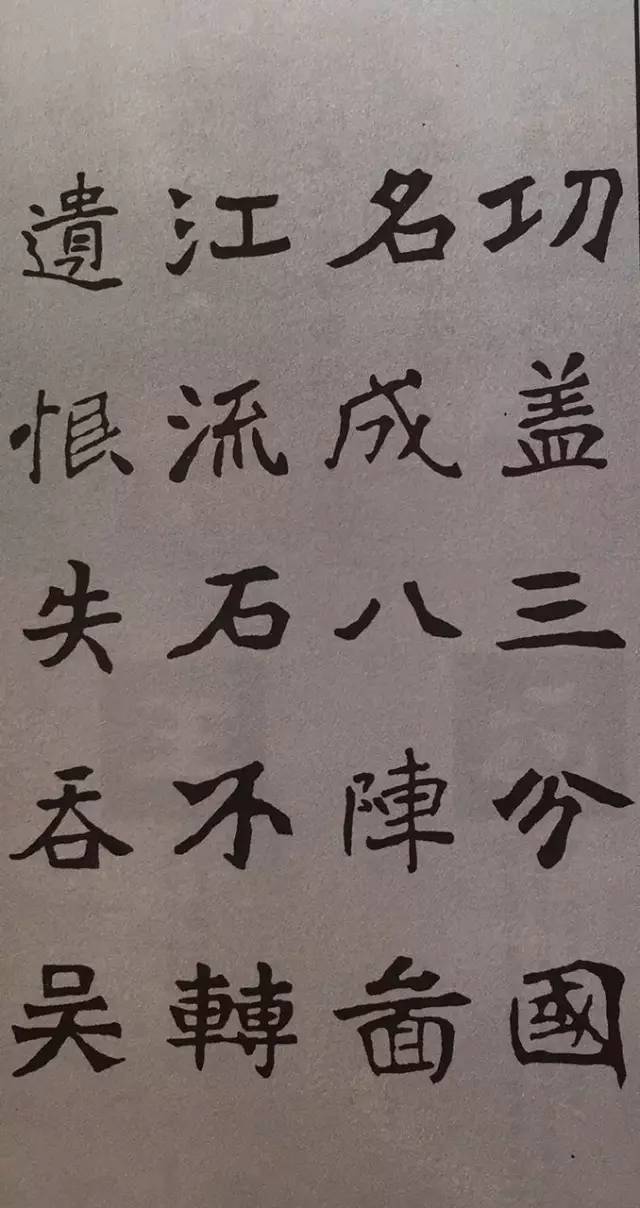 功盖三分國
名成八陣圖
江流石不轉
遺恨失吞吴